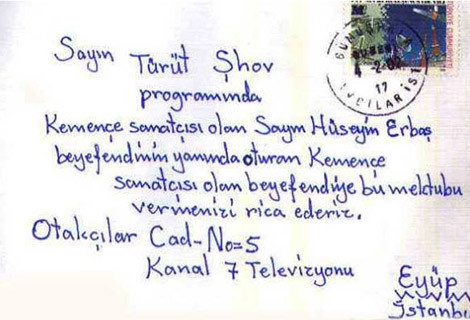 Sayın Türüt Şhov
programında
Kemençe sanatçısı olan Sayın Hüseyin Erbaş
beyefendinin yanında oturan Kemençe
sanatçısı olan beyefendiye bu mektubu
vermenizi rica ederiz.
Otakçılar Cad-No=5
Kanal 7 Televizyonu
Eyüp
İstanbu
TÜRKİYE CUMHURİYETİ
17
AVCILAR İST